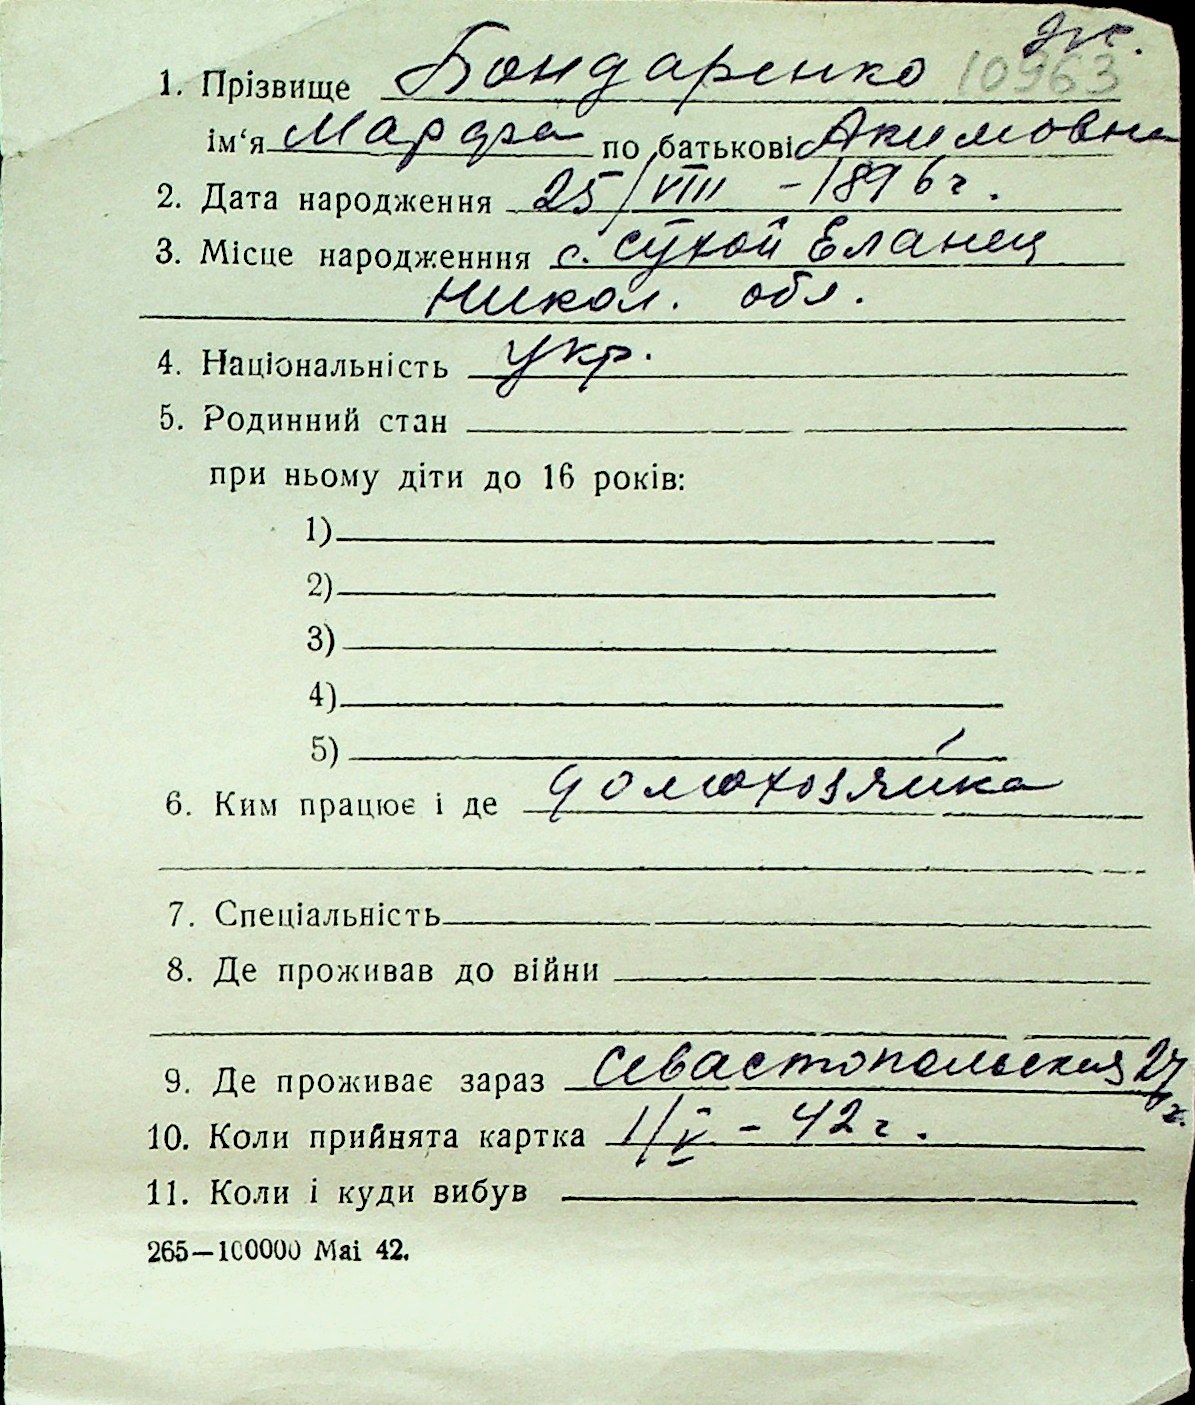 Эк.
1. Прізвище Бондаренко 10963
ім‘я Марфа по батькові Акимовна
2. Дата народження 25/VIII - 1896 г.
3. Місце народженння с. Сухой Еланец
Никол. обл.
4. Національність укр.
5. Родинний стан
при ньому діти до 16 років:
1)
2)
3)
4)
5)
6. Ким працює і де домохозяйка
7. Спеціальність
8. Де проживав до війни
9. Де проживає зараз Севастопольская 27
10. Коли прийнята картка 1/V - 42 г.
11. Коли і куди вибув
265—100000 Mai 42.